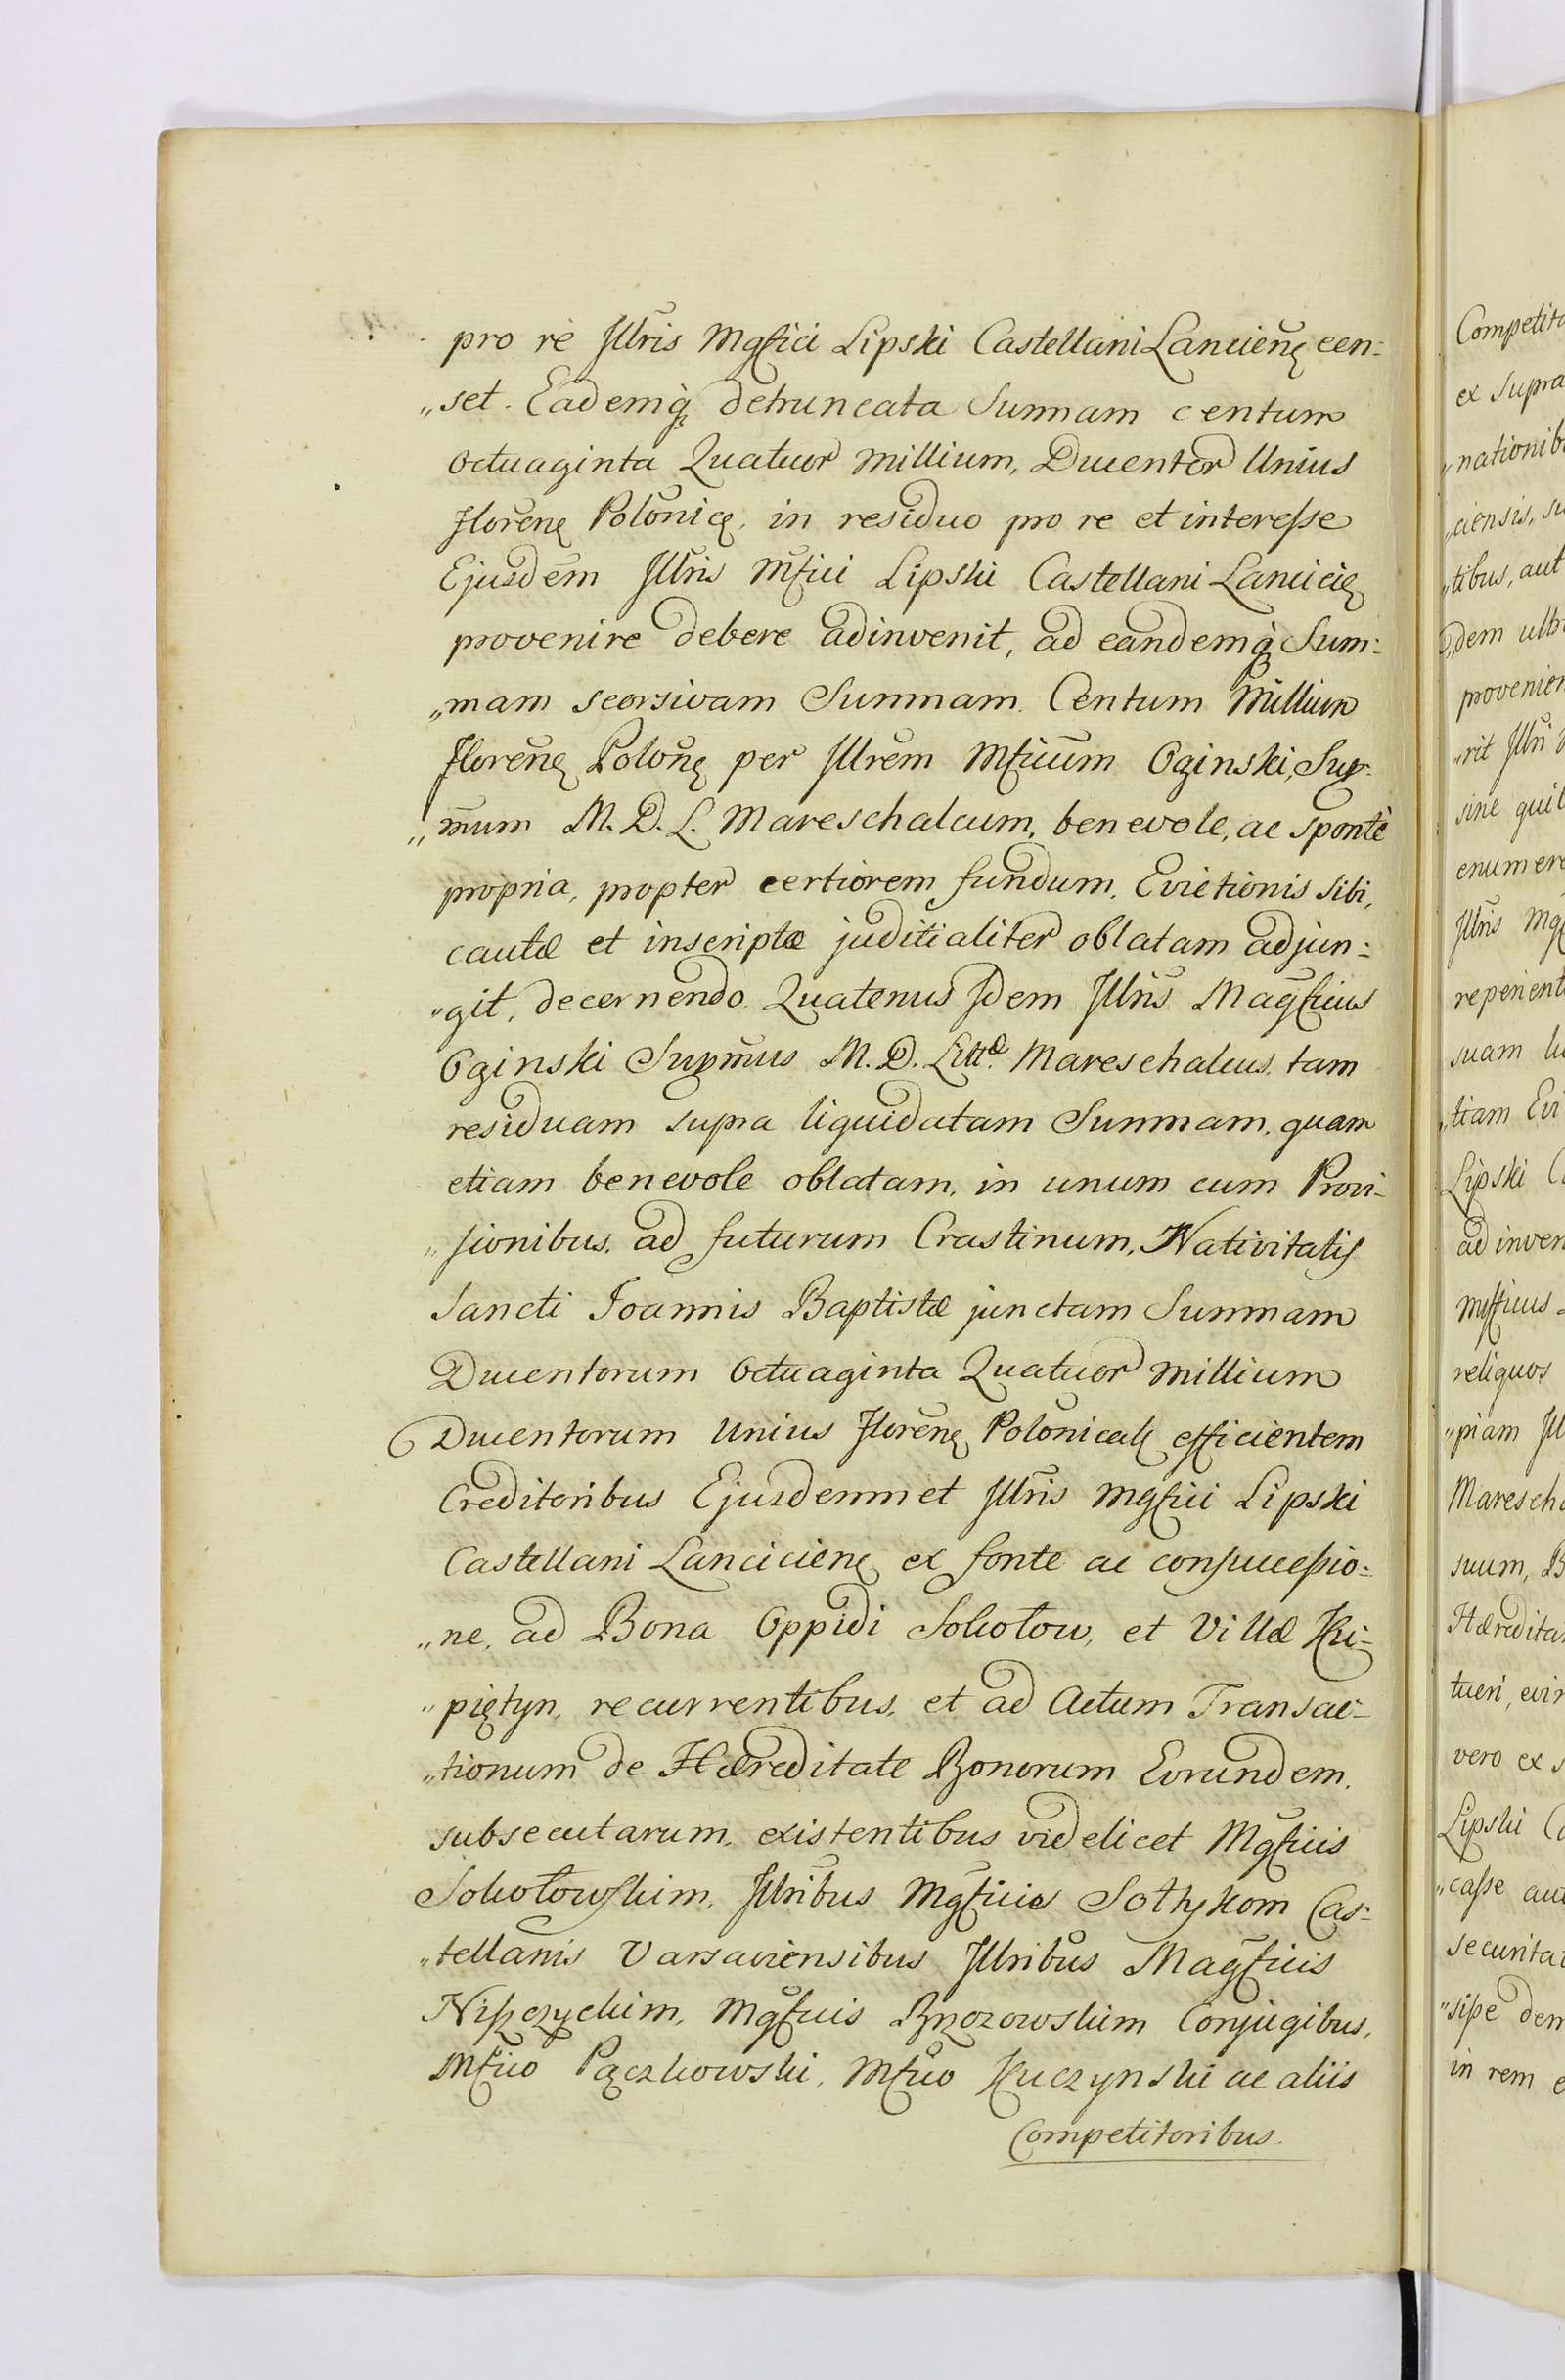 pro rè Jllris Mgfici Lipski Castellani Lancienę cen:
„set. Eademq̨ detruncata Summam centum
Octuaginta Quatuor Millium, Ducentor Unius
Florenę Polonicę, in residuo pro re et interesse
Ejusdem Jllris Mficii Lipski Castellani Lancicię
provenire debere adinvenit, ad eandemq̨ Sum:
„mam seorsivam Summam Centum Millium
Florenę Polonę per Jllrem Mficum Oginski, Sup:
„mum M. D. L. Mareschalcum, benevole, ac sponte
propria, propter certiorem fundum, Evictionis sibi,
cautæ et inscriptæ juditialiter oblatam adjun:
„git, decernendo Quatenus Jdem Jllris Magficus
Oginski Supmus M. D. Litt.æ Mareschalcus, tam
residuam supra liquidatam Summam, quam
etiam benevole oblatam, in unum cum Provi-
„sionibus, ad futurum Crastinum, Nativitatis
Sancti Joannis Baptistæ junctam Summam
Ducentorum Octuaginta Quatuor Millium
Ducentorum Unius Florenę Polonicalę efficientem
Creditoribus Ejusdemmet Jllris Mgfici Lipski
Castellani Lancicienę ex fonte ac consuccessio:
„ne, ad Bona Oppidi Sokołow, et Villæ Ku-
„piętyn, recurrentibus, et ad Actum Transac-
„tionum de Hæreditate Bonorum Eorundem,
subsecutarum, existentibus videlicet Mgficis
Sokołowskim, Jllribus Mgficis Sołtykom Cas-
„tellanis Varsaviensibus Jllribus Magficis
Niszczyckim, Mgficis Brzozowskim Conjugibus,
Mfico Pączkowski, Mfico Kuczynski ac aliis
Competitoribus
Competito
ex supra
„nationib
„ciensis, su
„tibus, aut
„dem ultr
provenien
„rit Jllri
sine quib
enumera
Jllris Mgf
reperient
suam
„tiam Evi
Lipski C
adinven
Mficus
reliquos
„piam Jll
Marescha
suum, B
Hæredita
tueri, evin
vero ex s
Lipski Ca
„casse aut
securitat
„sisse dem
in rem e